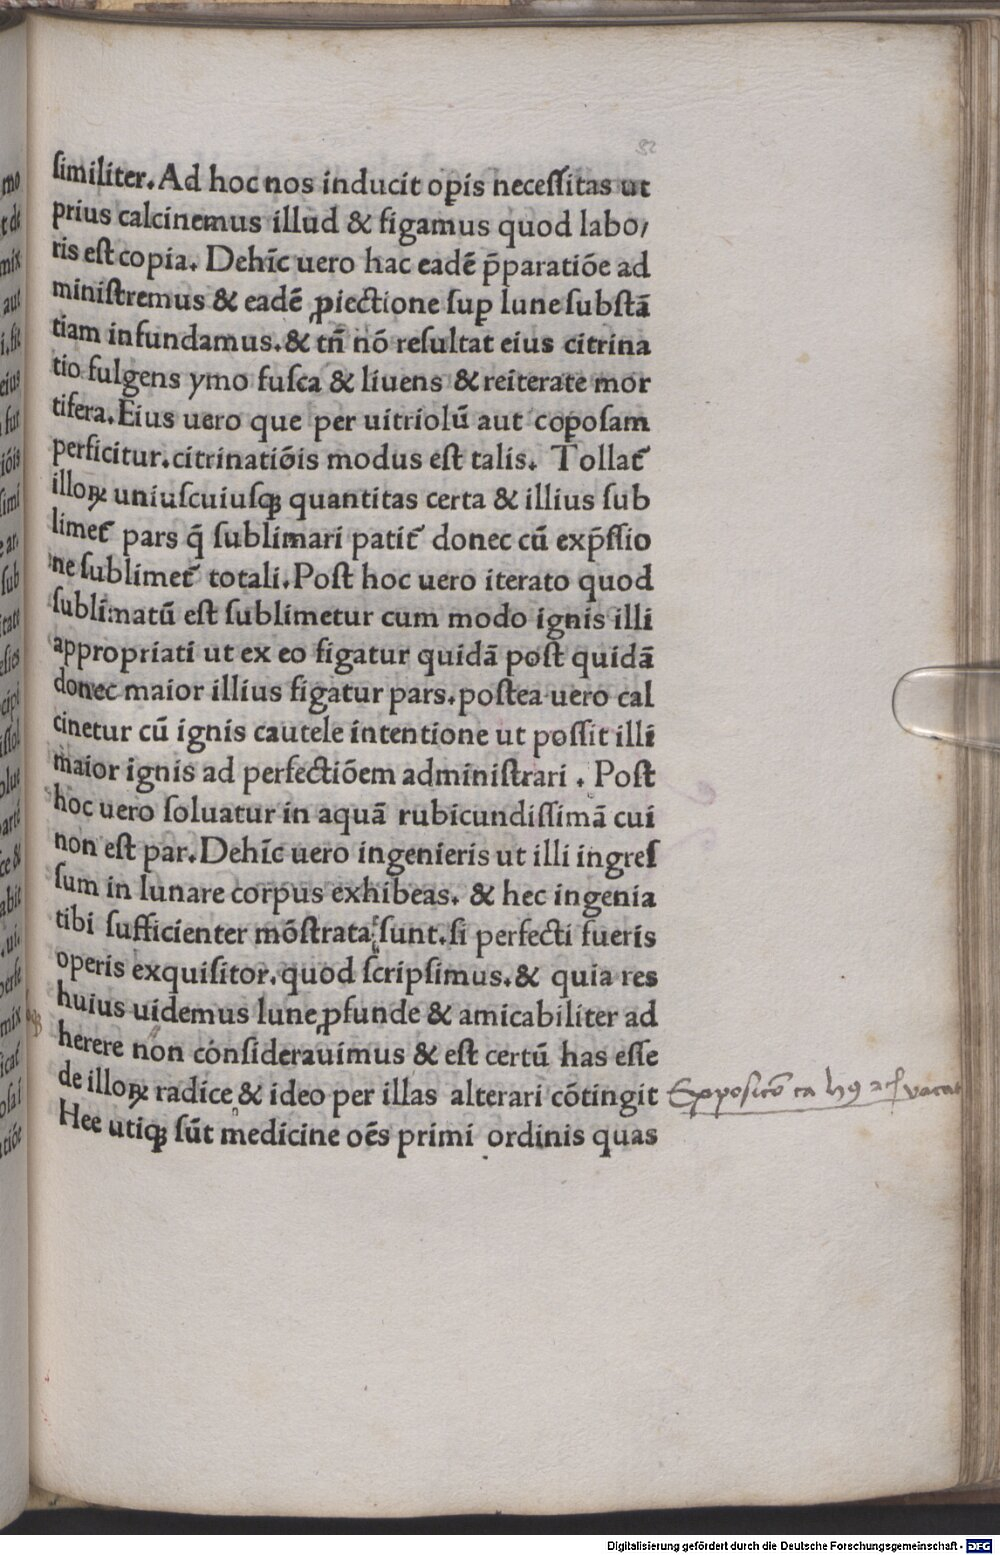 82
similiter. Ad hoc nos inducit oꝑis necessitas ut
prius calcinemus illud & figamus quod labo/
ris est copia. Dehīc uero hac eadē p̄paratiōe ad
ministremus & eadē ꝓiectione suꝑ lune substā
tiam infundamus. & tn̄ nō resultat eius citrina
tio fulgens ymo fusca & liuens & reiterate mor
tifera. Eius uero que per uitriolū aut coꝑosam
perficitur. citrinatiōis modus est talis. Tollat᷑
illoꝝ uniuscuiusqꝫ quantitas certa & illius sub
limet᷑ pars q̄ sublimari patit᷑ donec cū exp̄ssio
ne sublimet᷑ totali. Post hoc uero iterato quod
sublimatū est sublimetur cum modo ignis illi
appropriati ut ex eo figatur quidā post quidā
donec maior illius figatur pars. postea uero cal
cinetur cū ignis cautele intentione ut possit illi
maior ignis ad perfectiōem administrari . Post
hoc uero soluatur in aquā rubicundissimā cui
non est par. Dehīc uero ingenieris ut illi ingres
sum in lunare corpus exhibeas. & hec ingenia
tibi sufficienter mōstrata sunt. si perfecti fueris
operis exquisitor. quod scripsimus. & quia res
huius uidemus lune ꝓfunde & amicabiliter ad
herere non considerauimus & est certū has esse
de illoꝝ radice & ideo per illas alterari cōtingit
Hee utiqꝫ sūt medicine oēs primi ordinis quas
Digitalisierung gefördert durch die Deutsche Forschungsgemeinschaft - DFG